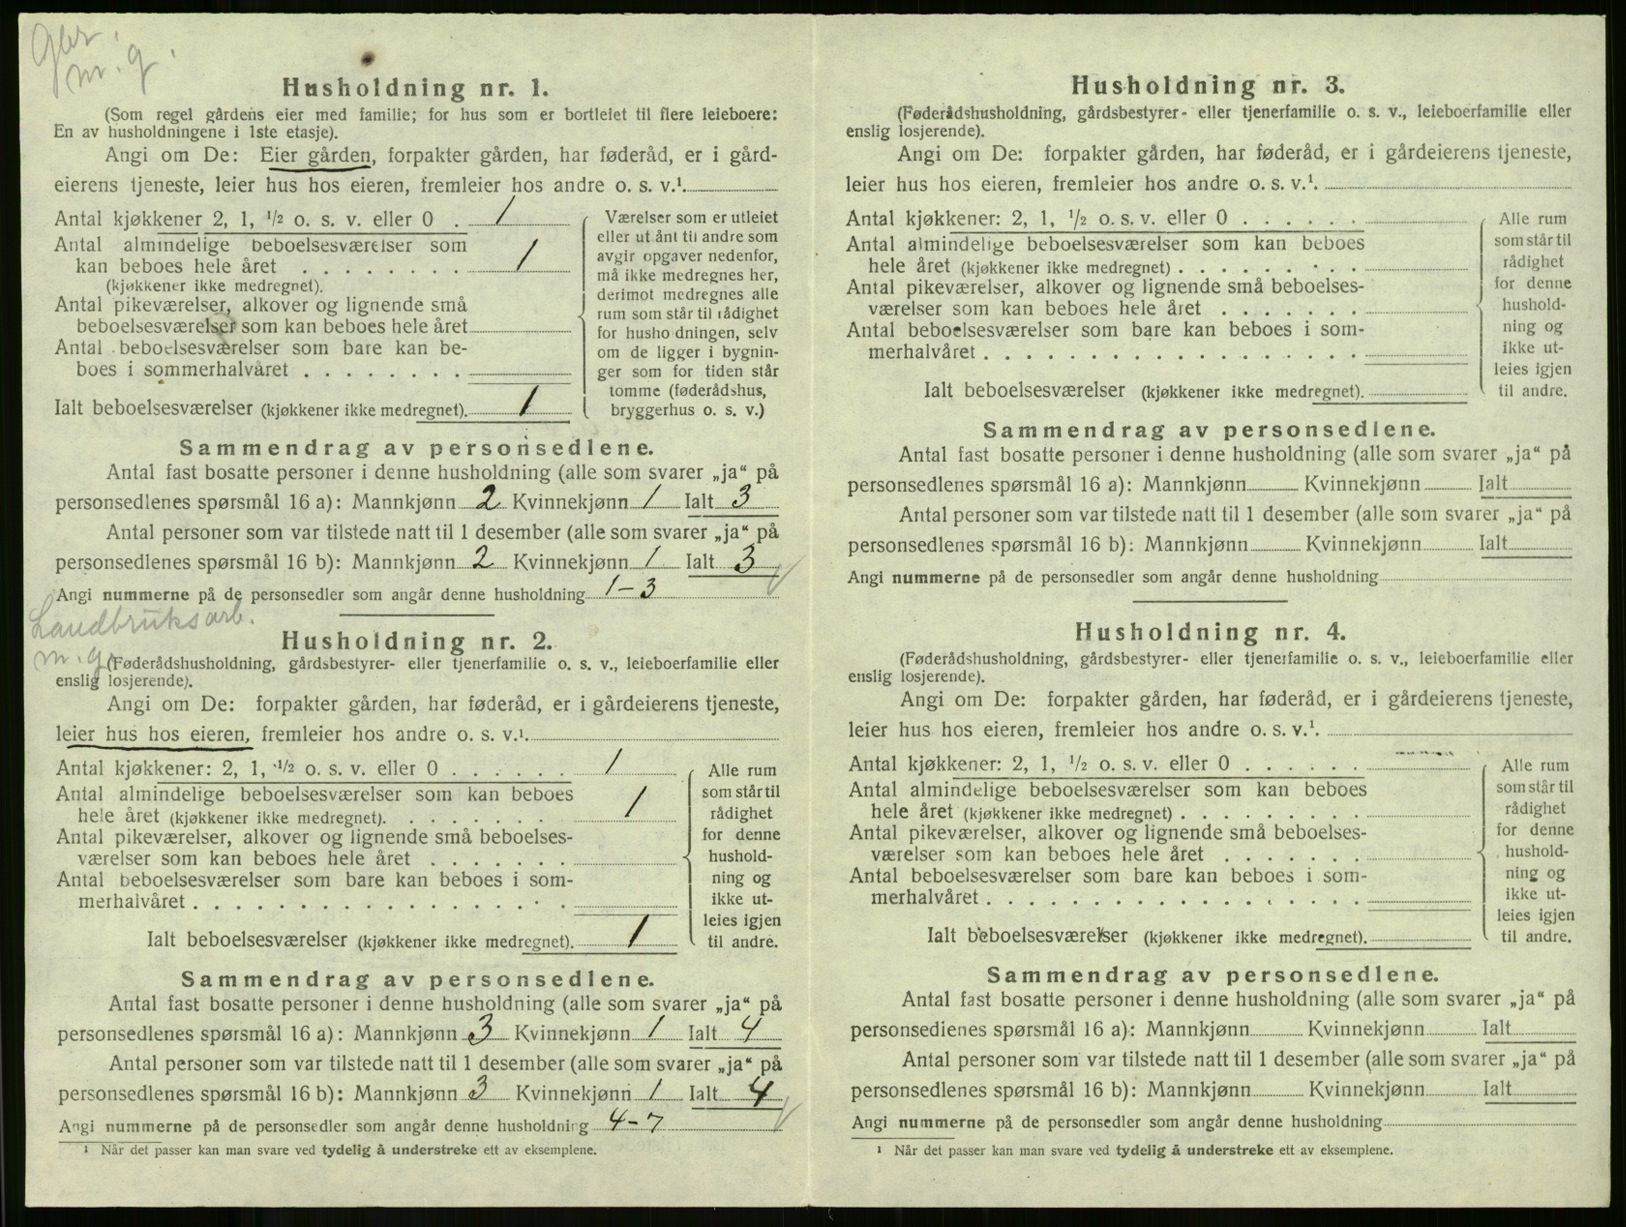 Gbr.
m. g.
Husholdning nr. 1.
(Som regel gårdens eier med familie; for hus som er bortleiet til flere leieboere:
En av husholdningene i 1ste etasje).
Angi om De: Eier gården, forpakter gården, har føderåd, er i gård-
eierens tjeneste, leier hus hos eieren, fremleier hos andre o. s. v.¹
Antal kjøkkener 2, 1, ½ o. s. v. eller 0 . 1
Antal almindelige beboelsesværelser som
kan beboes hele året . . . . . . . . 1
(kjøkkener ikke medregnet).
Antal pikeværelser, alkover og lignende små
beboelsesværelser som kan beboes hele året
Antal beboelsesværelser som bare kan be-
boes i sommerhalvåret . . . . . . . .
Ialt beboelsesværelser (kjøkkener ikke medregnet). 1
Værelser som er utleiet
eller ut ånt til andre som
avgir opgaver nedenfor,
må ikke medregnes her,
derimot medregnes alle
rum som står til rådighet
for husho dningen, selv
om de ligger i bygnin-
ger som for tiden står
tomme (føderådshus,
bryggerhus o. s. v.)
Sammendrag av personsedlene.
Antal fast bosatte personer i denne husholdning (alle som svarer „ja“ på
personsedlenes spørsmål 16 a): Mannkjønn 2 Kvinnekjønn 1 Ialt 3
Antal personer som var tilstede natt til 1 desember (alle som svarer „ja“ på
personsedlenes spørsmål 16 b): Mannkjønn 2 Kvinnekjønn 1 Ialt 3
Angi nummerne på de personsedler som angår denne husholdning 1-3
Landbruksarb.
m. g.
Husholdning nr. 2.
(Føderådshusholdning, gårdsbestyrer- eller tjenerfamilie o. s. v., leieboerfamilie eller
enslig losjerende).
Angi om De: forpakter gården, har føderåd, er i gårdeierens tjeneste,
leier hus hos eieren, fremleier hos andre o. s. v.¹.
Antal kjøkkener: 2, 1, ½ o. s. v. eller 0 . . . . . . 1
Antal almindelige beboelsesværelser som kan beboes
hele året (kjøkkener ikke medregnet). . . . . . . . 1
Antal pikeværelser, alkover og lignende små beboelses-
værelser som kan beboes hele året . . . . . . .
Antal beboelsesværelser som bare kan beboes i som-
merhalvåret . . . . . . . . . . . . . . . . .
Ialt beboelsesværelser (kjøkkener ikke medregnet). 1
Alle rum
som står til
rådighet
for denne
hushold-
ning og
ikke ut-
leies igjen
til andre.
Sammendrag av personsedlene.
Antal fast bosatte personer i denne husholdning (alle som svarer „ja“ på
personsedlenes spørsmål 16 a): Mannkjønn 3 Kvinnekjønn 1 Ialt 4
Antal personer som var tilstede natt til 1 desember (alle som svarer „ja“ på
personsedlenes spørsmål 16 b): Mannkjønn 3 Kvinnekjønn 1 Ialt 4
Angi nummerne på de personsedler som angår denne husholdning 4-7
¹ Når det passer kan man svare ved tydelig å understreke ett av eksemplene.
Husholdning nr. 3.
(Føderådshusholdning, gårdsbestyrer- eller tjenerfamilie o. s. v., leieboerfamilie eller
enslig losjerende).
Angi om De: forpakter gården, har føderåd, er i gårdeierens tjeneste,
leier hus hos eieren, fremleier hos andre o. s. v.¹.
Antal kjøkkener: 2, 1, ½ o. s. v. eller 0 . . . . . .
Antal almindelige beboelsesværelser som kan beboes
hele året (kjøkkener ikke medregnet) . . . . . . . . .
Antal pikeværelser, alkover og lignende små beboelses-
værelser som kan beboes hele året . . . . . . .
Antal beboelsesværelser som bare kan beboes i som-
merhalvåret . . . . . . . . . . . . . . . . .
Ialt beboelsesværelser (kjøkkener ikke medregnet).
Alle rum
som står til
rådighet
for denne
hushold-
ning og
ikke ut-
leies igjen
til andre.
Sammendrag av personsedlene.
Antal fast bosatte personer i denne husholdning (alle som svarer „ja“ på
personsedlenes spørsmål 16 a): Mannkjønn Kvinnekjønn Ialt
Antal personer som var tilstede natt til 1 desember (alle som svarer „ja“ på
personsedlenes spørsmål 16 b): Mannkjønn Kvinnekjønn Ialt
Angi nummerne på de personsedler som angår denne husholdning
Husholdning nr. 4.
(Føderådshusholdning, gårdsbestyrer- eller tjenerfamilie o. s. v., leieboerfamilie eller
enslig losjerende).
Angi om De: forpakter gården, har føderåd, er i gårdeierens tjeneste,
leier hus hos eieren, fremleier hos andre o. s. v.¹.
Antal kjøkkener: 2, 1, ½ o. s. v. eller 0 . . . . . .
Antal almindelige beboelsesværelser som kan beboes
hele året (kjøkkener ikke medregnet) . . . . . . . . .
Antal pikeværelser, alkover og lignende små beboelses-
værelser som kan beboes hele året . . . . . . .
Antal beboelsesværelser som bare kan beboes i som-
merhalvåret . . . . . . . . . . . . . . . . .
Ialt beboelsesværelser (kjøkkener ikke medregnet).
Alle rum
som står til
rådighet
for denne
hushold-
ning og
ikke ut-
leies igjen
til andre.
Sammendrag av personsedlene.
Antal fast bosatte personer i denne husholdning (alle som svarer „ja“ på
personsedlenes spørsmål 16 a): Mannkjønn Kvinnekjønn Ialt
Antal personer som var tilstede natt til 1 desember (alle som svarer „ja“ på
personsedlenes spørsmål 16 b): Mannkjønn Kvinnekjønn Ialt
Angi nummerne på de personsedler som angår denne husholdning
¹ Når det passer kan man svare ved tydelig å understreke ett av eksemplene.